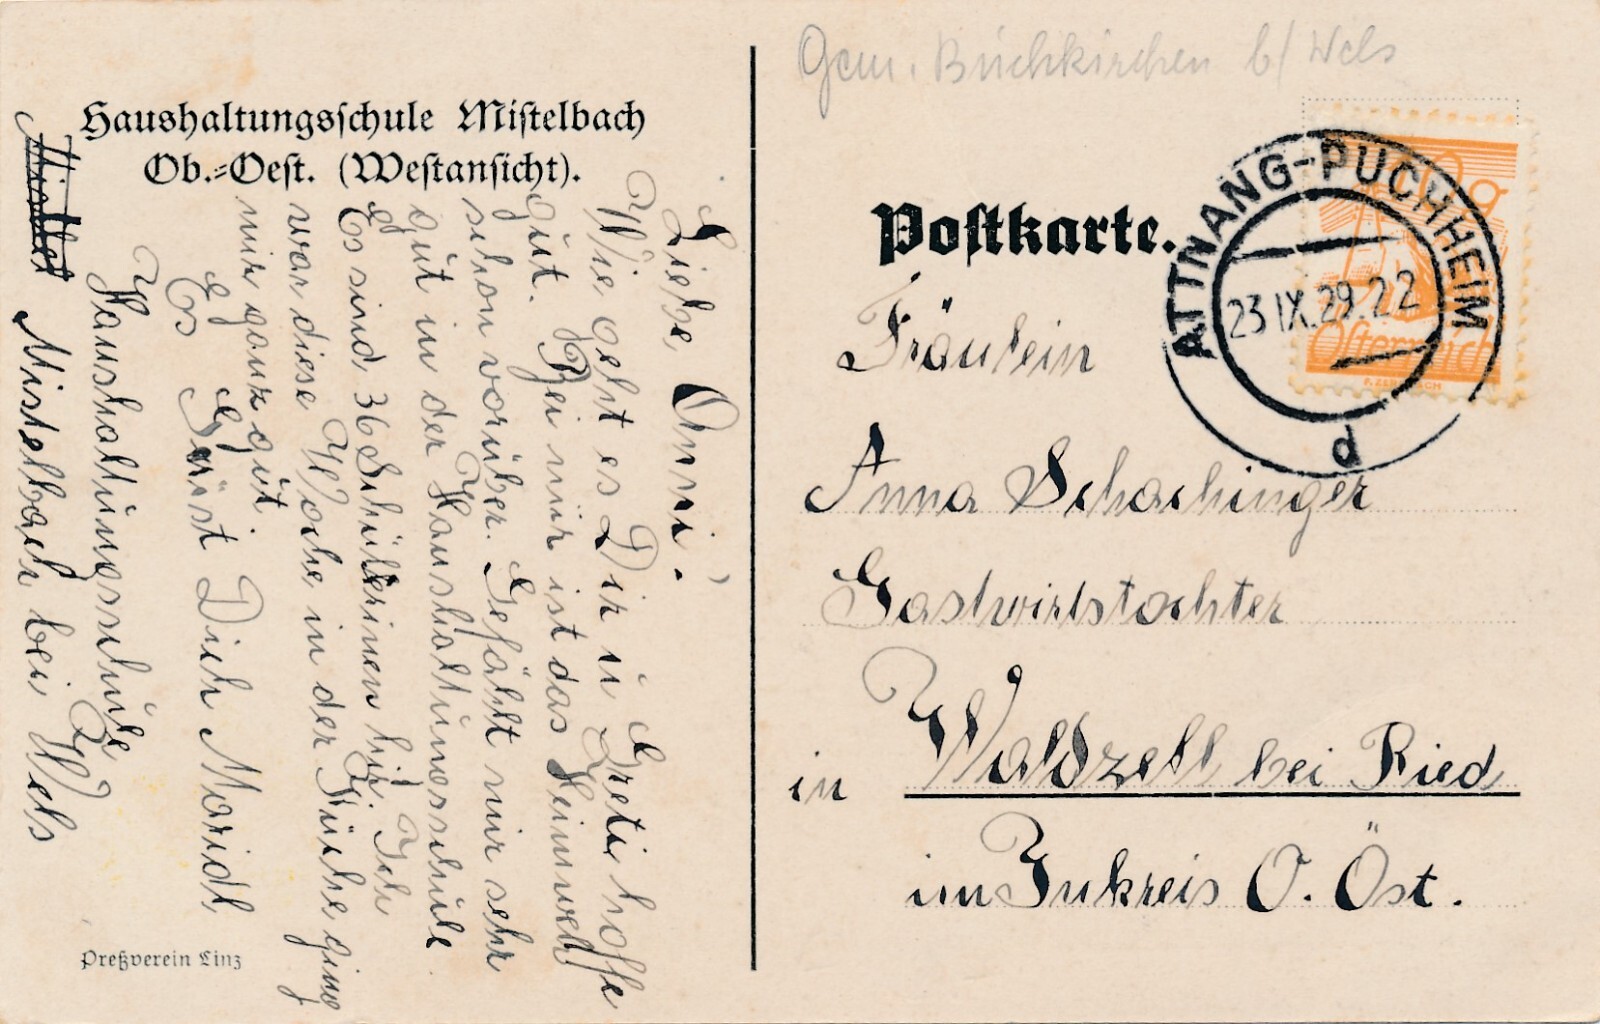 Haushaltungsschule Mistelbach
Ob.-Oest. (Westansicht).
Liebe Anni!
Wie geht es Dir u Greti hoffe
gut. Bei mir ist das Heimweh
schon vorüber. Gefählt mir sehr
gut in der Haushaltungsschule.
Es sind 36 Schülerinen hir. Ich
war diese Woche in der Küche ging
mir ganz gut.
Es Grüst Dich Maridl
Haushaltungsschule
Mistelbach bei Wels
Preßverein Linz
Gem. Buchkirchen b/Wels
Postkarte.
ATTNANG-PUCHHEIM
23.IX.29.22
d
10g
Österreich
Fräulein
Anna Schachinger
Gastwirtstochter
in Waldzell bei Ried
im Inkreis O. Öst.